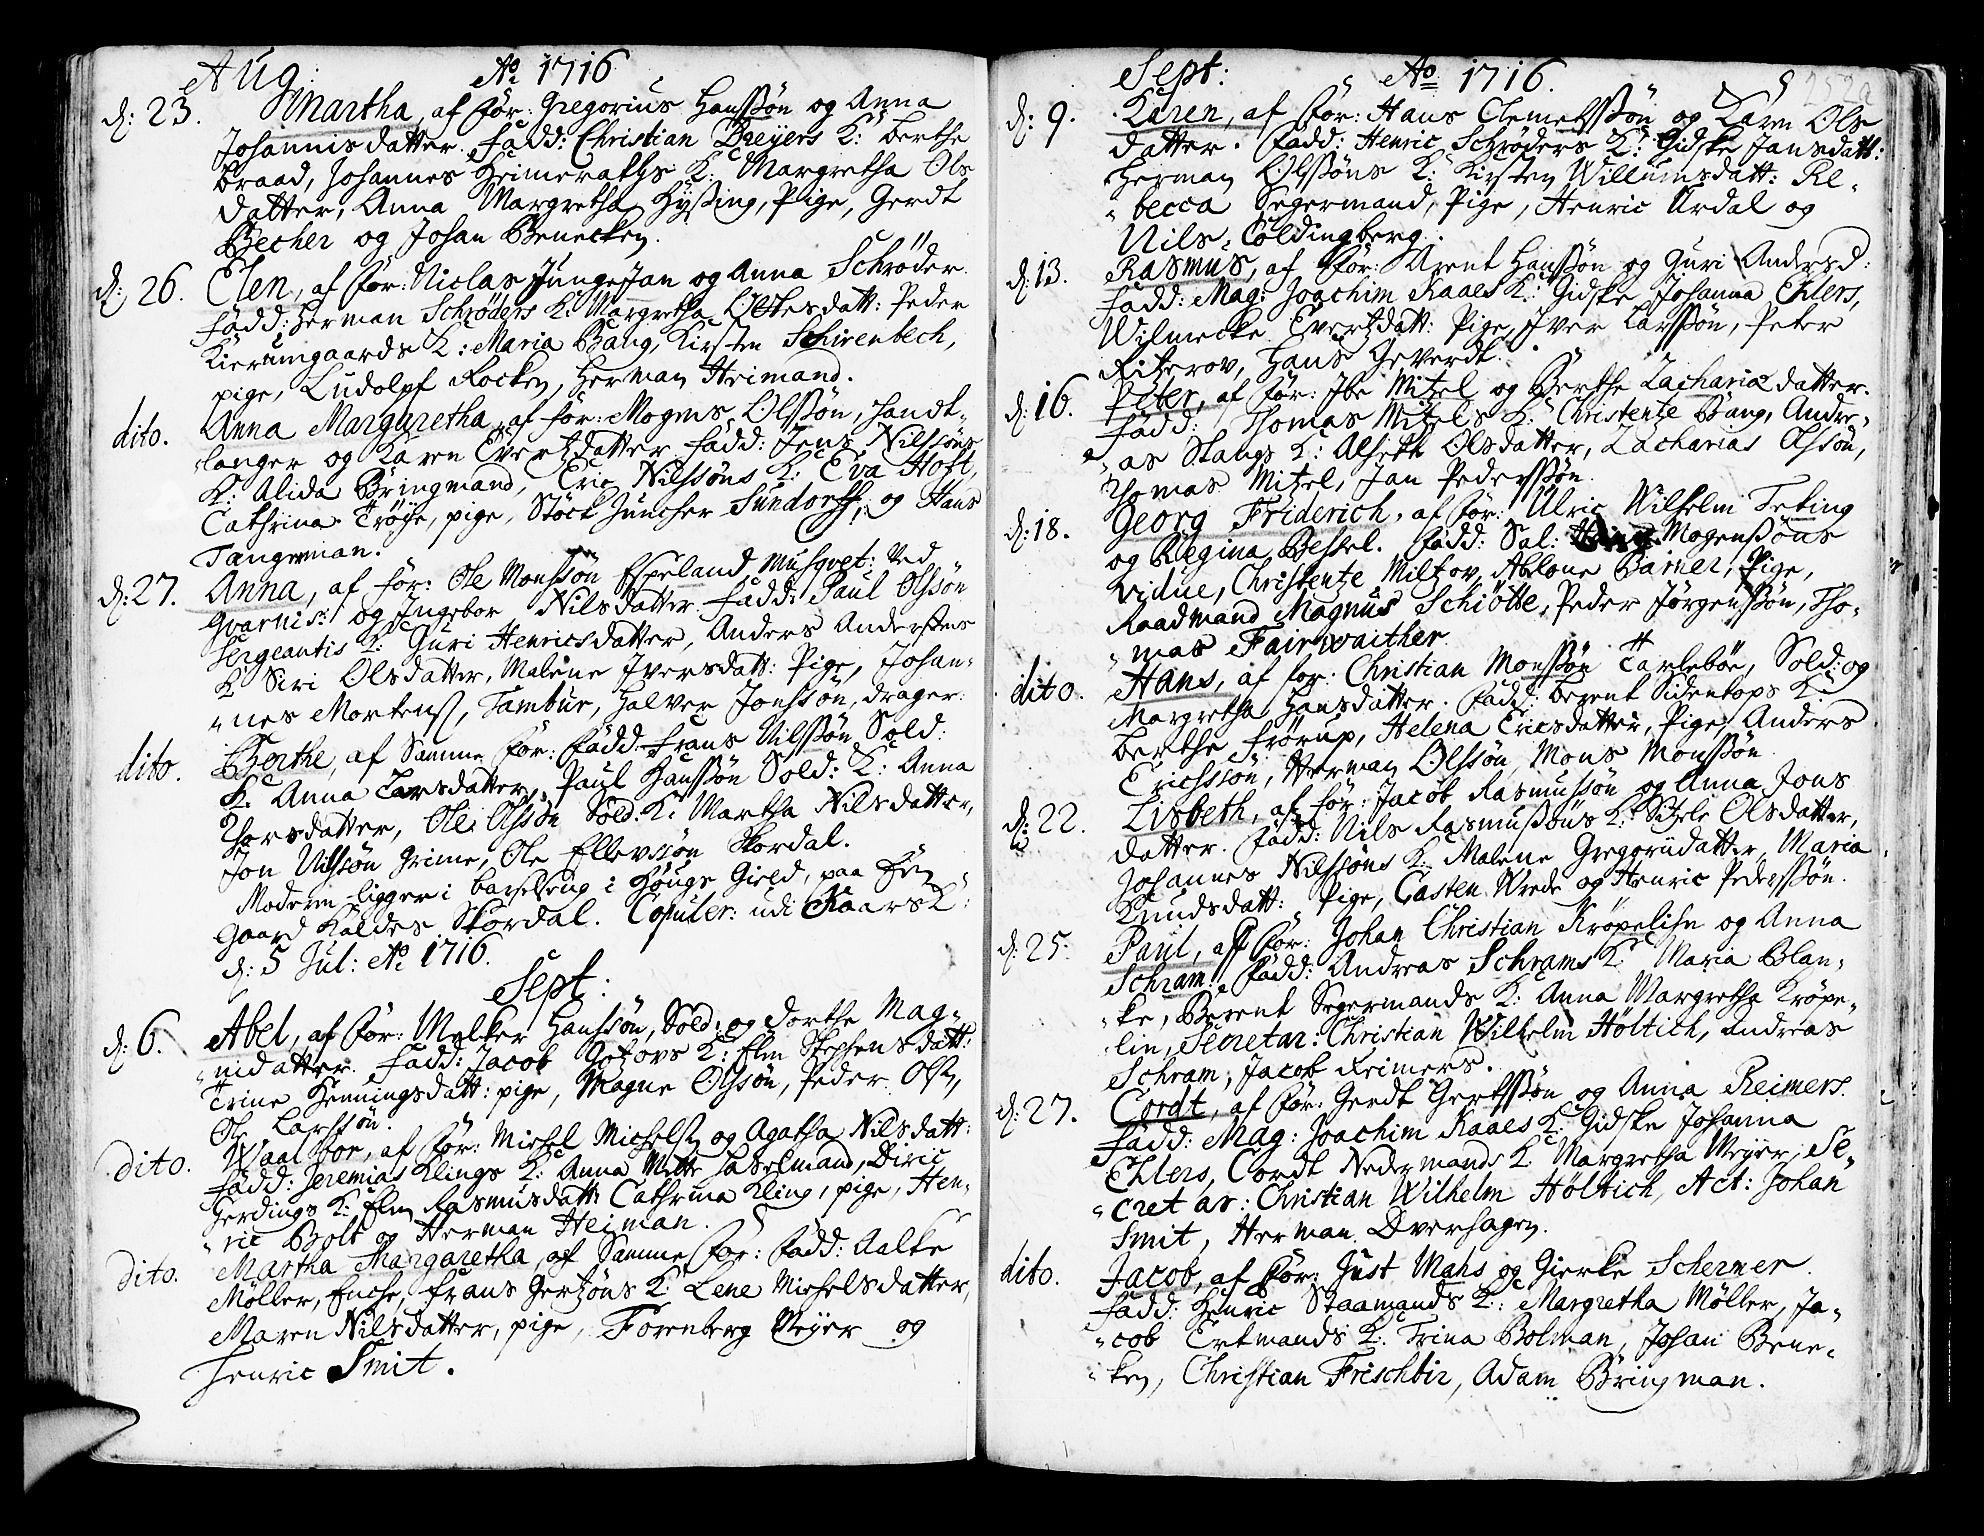 Aug: Ao 1716
d: 23. Martha, af for: Gregorius Hanssøn og Anna
Johannisdatter. Fadd: Christian Dreyers K: Berthe
Braad, Johannes Heimeraths K: Margretha Ols
datter, Anna Margretha Hyssing, Pige, Gerdt
Becher og Johan Benecken.
d: 26. Elen, af for: Niclas Jungesan og Anna Schrøder.
Fadd: Herman Schrøders K: Margretha Oltesdatt: Peder
Kierumgaards K: Maria Bang, Kirsten Schirenbech,
pige, Ludolpf Rocken, Herman Heimand.
dito. Anna Margaretha, af for: Mogens Olssøn, Handt-
langer og Karen Evertzdatter Fadd: Jens Nilssøns
K: Alida Bringmand, Eric Nilssøns K: Eva Hoft,
Cathrina Trøye, pige, Støck Juncher Sundorff, og Hans
Tangerman.
d: 27. Anna, af for: Ole Monssøn Espeland Musqvet: Ved
Gvarnis: og Ingebor Nilsdatter. Fadd: Paul Olssøn
Sergeantis K: Guri Henricsdatter, Anders Anderssens
K Siri Olsdatter, Malene Iversdatt: Pige, Johan-
nes Mortens, Tambur, Halver Jonssøn, drager.
dito. Berthe, af Samme for: Fadd Frans Nilssøn Sold:
K: Anna Larsdatter, Paul Hanssøn Sold: K: Anna
Thorsdatter, Ole Olssøn Sold: K: Martha Nilsdatter,
Jon Nilssøn Grime, Ole Ellevssøn Skordal.
Moderen ligger i barselseng i Houge Gield, paa Een
Gaard Kaldes Skordal. Copuler: udi Kaars K:
d: 5 Jul: Ao 1716.
Sept:
d: 6. Abel, af for: Melker Hanssøn, Sold: og Dorthe Mag-
nidatter. Fadd: Jacob Gotzovs K: Elen Stephensdatt:
Trine Henningsdatt: pige, Magne Olssøn, Peder Ols,
Ole Larssøn.
dito. Waalbor, af for: Michel Michels og Agatha Nilsdatt:
Fadd: Jeremias Klings K: Anna Mette Haselmand, Diric
Gerdings K: Elen Rasmusdatt: Cathrina Kling, pige, Hen-
ric Bolt og Herman Heiman.
dito. Martha Margaretha, af Samme for: Fadd: Aalke
Møller, Enche, Frans Gertzøns K: Lene Michelsdatter,
Maren Nilsdatter, pige, Forenberg Meyer og
Henric Smit.
Sept: Ao 1716.
d: 9. Karen, af for: Hans Clemetssøn og Karen Ols
datter. Fadd: Henric Schrøders K: Gidske Jansdatt:
Herman Olssøns K: Kirsten Willumsdatt: Re-
becca Segermand, Pige, Henric Ardal og
Nils Coldingberg.
d: 13. Rasmus, af for: Arent Hanssøn og Guri Andersd:
Fadd: Mag: Joachim Raaes K: Gidske Johanna Ehlers,
Wilmecke Evertzdatt: Pige, Iver Larssøn, Peter
Ritzerov, Hans Geverdt.
d: 16. Peter, af for: Ibe Mitzel og Berthe Zachariæ datter.
Fadd: Thomas Mitzels K: Christentze Bang, Andre-
as Stangs K: Alheth Olsdatter, Zacharias Olssøn,
Thomas Mitzel, Jan Pederssøn.
d: 18. Georg Friderich, af for: Ulric Wilhelm Teting
og Regina Bessel. Fadd: Sal: Mogenssøns
vidue, Christentze Miltzov, Ablone Barner, Pige,
Raadmand Magnus Schiøtte, Peder Jørgenssøn, Tho-
mas Fairwaither.
dito. Hans, af for: Christian Monssøn Tarlebøe, Sold: og
Margretha Hansdatter. Fadd: Berent Sidentops K:
Berthe Frørup, Helena Ericsdatter, Pige, Anders
Ericssøn, Herman Olssøn, Mons Monssøn.
d: 22. Lisbeth, af for: Jacob Rasmussøn og Anna Jons
datter. Fadd: Nils Rasmussøns K: Sitzele Olsdatter,
Johannes Nilssøns K: Malene Gregoriidatter, Maria
Knudsdatt: Pige, Casten Wrede og Henric Pederssøn.
d: 25. Paul, af for: Johan Christian Krøpelihn og Anna
Schram. Fadd: Andreas Schrams K: Maria Blan-
ke, Berent Segermands K: Anna Margretha Krøpe-
lin, Secretar: Christian Wilhelm Høltich, Andreas
Schram, Jacob Reimers.
d: 27. Cordt, af for: Gerdt Gertssøn og Anna Reimers.
Fadd: Mag: Joachim Raaes K: Gidske Johanna
Ehlers, Cordt Nedermands K: Margretha Meyer, Se-
cretar: Christian Wilhelm Høltich, Act: Johan
Smit, Herman Overhagen.
dito. Jacob, af for: Just Mahs og Gierke Schermer.
Fadd: Henric Staamands K: Margretha Møller, Ja-
cob Ertmands K: Trina Bolman, Johan Bene-
ken, Christian Frischbir, Adam Bringman.